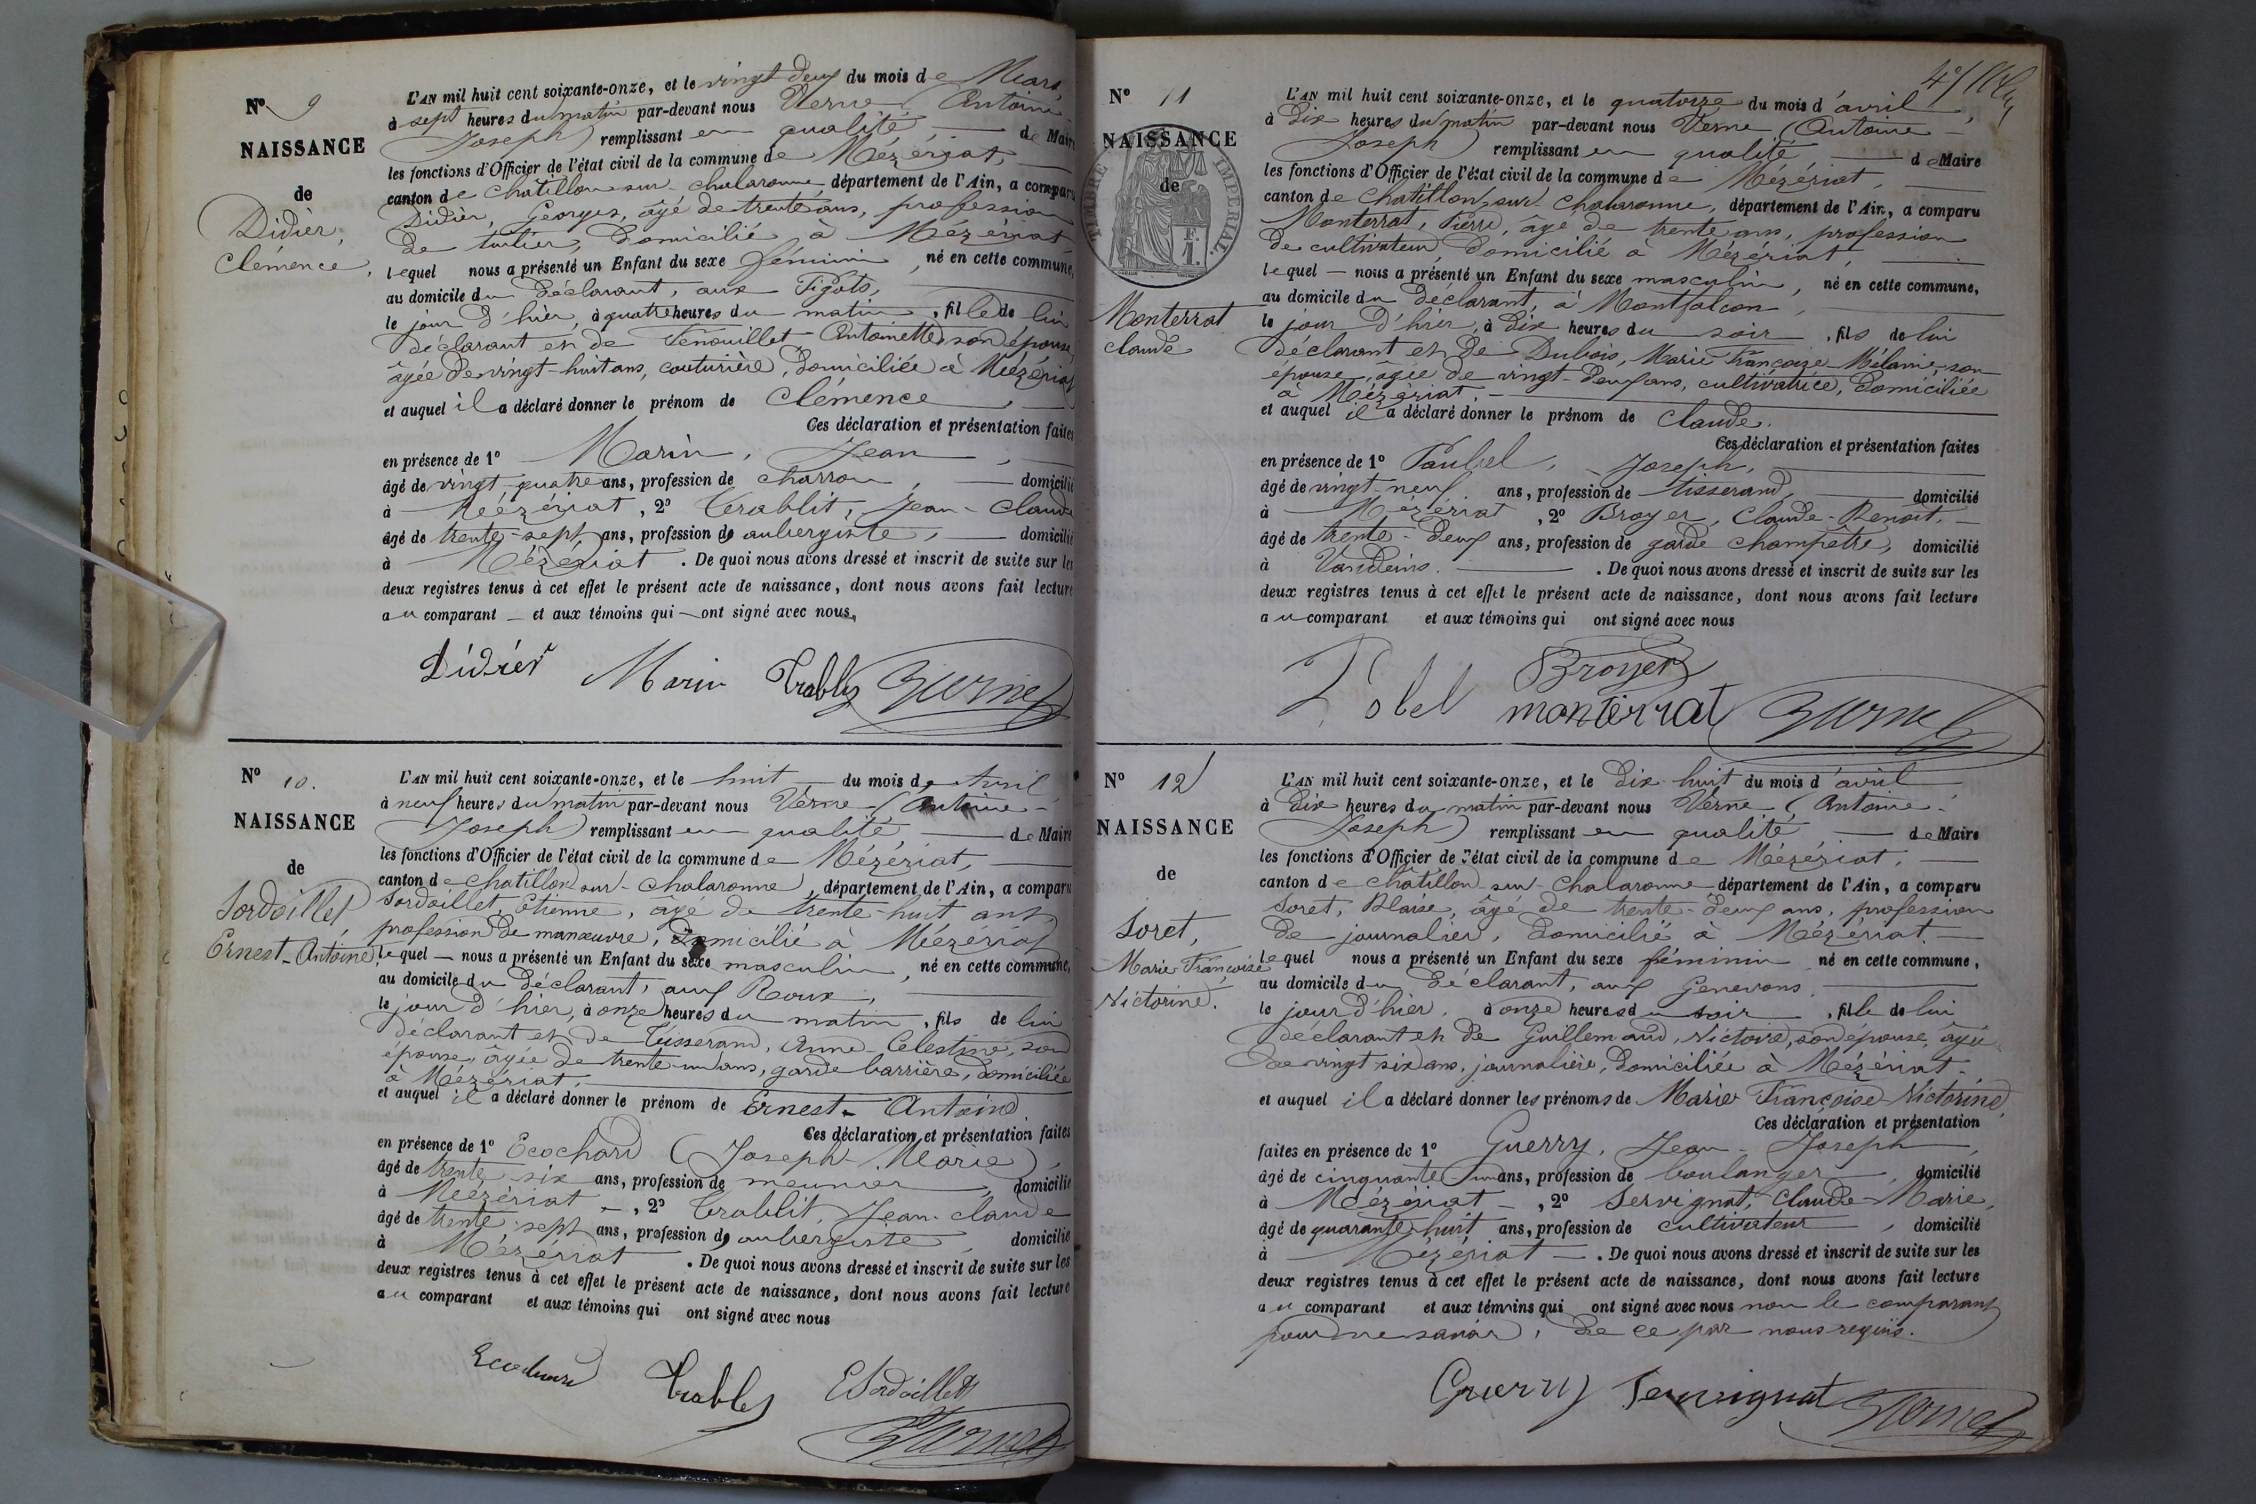 Nº 9
NAISSANCE
de
Didier,
Clémence,
L'AN mil huit cent soixante-onze, et le vingt deux du mois de Mars,
à sept heures du matin par-devant nous Verne (Antoine-
Joseph) remplissant en qualité de Maire
les fonctions d'Officier de l'état civil de la commune de Mézériat,
canton de Chatillon sur Chalaronne, département de l'Ain, a comparu
Didier, Georges, âgé de trente ans, profession
de tuilier, domicilié à Mézériat
lequel nous a présenté un Enfant du sexe féminin, né en cette commune,
au domicile du déclarant, aux Pigots,
le jour d'hier, à quatre heures du matin, fille de lui
déclarant et de Fenouillet Antoinette son épouse,
âgée de vingt-huit ans, couturière, domiciliée à Mézériat
et auquel il a déclaré donner le prénom de Clémence,
Ces déclaration et présentation faites
en présence de 1º Marin, Jean,
âgé de vingt-quatre ans, profession de charron, domicilié
à Mézériat, 2º Trablit, Jean-Claude
âgé de trente-sept ans, profession de aubergiste, domicilié
à Mézériat. De quoi nous avons dressé et inscrit de suite sur les
deux registres tenus à cet effet le présent acte de naissance, dont nous avons fait lecture
au comparant et aux témoins qui ont signé avec nous,
Didier Marin Trablit
Nº 10.
NAISSANCE
de
Sordoillet,
Ernest-Antoine,
L'AN mil huit cent soixante-onze, et le huit du mois de Avril
à neuf heures du matin par-devant nous Verne (Antoine-
Joseph) remplissant en qualité de Maire
les fonctions d'Officier de l'état civil de la commune de Mézériat,
canton de Chatillon sur-Chalaronne, département de l'Ain, a comparu
Sordoillet, Etienne, âgé de trente-huit ans
profession de manœuvre, domicilié à Mézériat
lequel nous a présenté un Enfant du sexe masculin, né en cette commune,
au domicile du déclarant, aux Roux,
le jour d'hier, à onze heures du matin, fils de lui
déclarant et de Tisserand, Anne-Célestine, son
épouse, âgée de trente-un ans, garde barrière, domiciliée
à Mézériat,
et auquel il a déclaré donner le prénom de Ernest-Antoine.
Ces déclaration et présentation faites
en présence de 1º Ecochard (Joseph Marie),
âgé de trente-six ans, profession de meunier, domicilié
à Mézériat, 2º Trablit, Jean-Claude
âgé de trente-sept ans, profession de aubergiste, domicilié
à Mézériat. De quoi nous avons dressé et inscrit de suite sur les
deux registres tenus à cet effet le présent acte de naissance, dont nous avons fait lecture
au comparant et aux témoins qui ont signé avec nous
Ecochard Trablit E Sordoillet
Nº 11
NAISSANCE
de
TIMBRE IMPERIAL.
F.
1.
Monterrat
Claude
L'AN mil huit cent soixante-onze, et le quatorze du mois d'avril,
à dix heures du matin par-devant nous Verne (Antoine-
Joseph) remplissant en qualité de Maire
les fonctions d'Officier de l'état civil de la commune de Mézériat,
canton de Chatillon, sur Chalaronne, département de l'Ain, a comparu
Monterrat, Pierre, âgé de trente ans, profession
de cultivateur, domicilié à Mézériat,
lequel nous a présenté un Enfant du sexe masculin, né en cette commune,
au domicile du déclarant, à Montfalcon,
le jour d'hier, à dix heures du soir, fils de lui
déclarant et de Dubois, Marie Françoise-Mélanie, son
épouse, âgée de vingt-deux ans, cultivatrice, domiciliée
à Mézériat.
et auquel il a déclaré donner le prénom de Claude.
Ces déclaration et présentation faites
en présence de 1º Joseph,
âgé de vingt-neuf ans, profession de tisserand, domicilié
à Mézériat, 2º Broyer, Claude-Benoît,
âgé de trente-deux ans, profession de garde champêtre, domicilié
à Vandeins. De quoi nous avons dressé et inscrit de suite sur les
deux registres tenus à cet effet le présent acte de naissance, dont nous avons fait lecture
au comparant et aux témoins qui ont signé avec nous
Broyer
monterrat
Nº 12
NAISSANCE
de
Soret,
Marie Françoise
Victorine.
L'AN mil huit cent soixante-onze, et le dix-huit du mois d'avril
à dix heures du matin par-devant nous Verne (Antoine-
Joseph) remplissant en qualité de Maire
les fonctions d'Officier de l'état civil de la commune de Mézériat,
canton de Châtillon-sur-Chalaronne département de l'Ain, a comparu
Soret, Blaise, âgé de trente-deux ans, profession
de journalier, domicilié à Mézériat
lequel nous a présenté un Enfant du sexe féminin né en cette commune,
au domicile du déclarant, aux Genevons,
le jour d'hier, à onze heures du soir, fille de lui
déclarant et de Guillemaud, Victoire, son épouse, âgée
de vingt six ans, journalière, domiciliée à Mézériat-
et auquel il a déclaré donner les prénoms de Marie Françoise-Victorine,
Ces déclaration et présentation
faites en présence de 1º Guerry, Jean-Joseph,
âgé de cinquante-un ans, profession de boulanger, domicilié
à Mézériat, 2º Servignat, Claude-Marie,
âgé de quarante-huit ans, profession de cultivateur, domicilié
à Mézériat. De quoi nous avons dressé et inscrit de suite sur les
deux registres tenus à cet effet le présent acte de naissance, dont nous avons fait lecture
au comparant et aux témoins qui ont signé avec nous non le comparant
pour ne savoir, de ce par nous requis.
Guerry Servignat